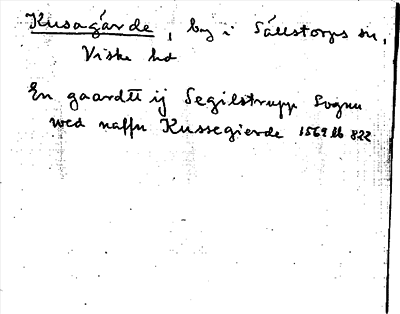 Kusagårde, by i Sällstorps sn,
Viske hd
En gaardtt ij Segilstrupp Sognn
wed naffn Kussegierde 1562 lb 822